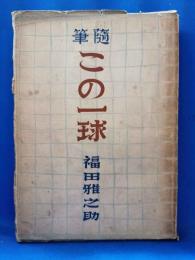 隨筆
この一球
福田雅之助